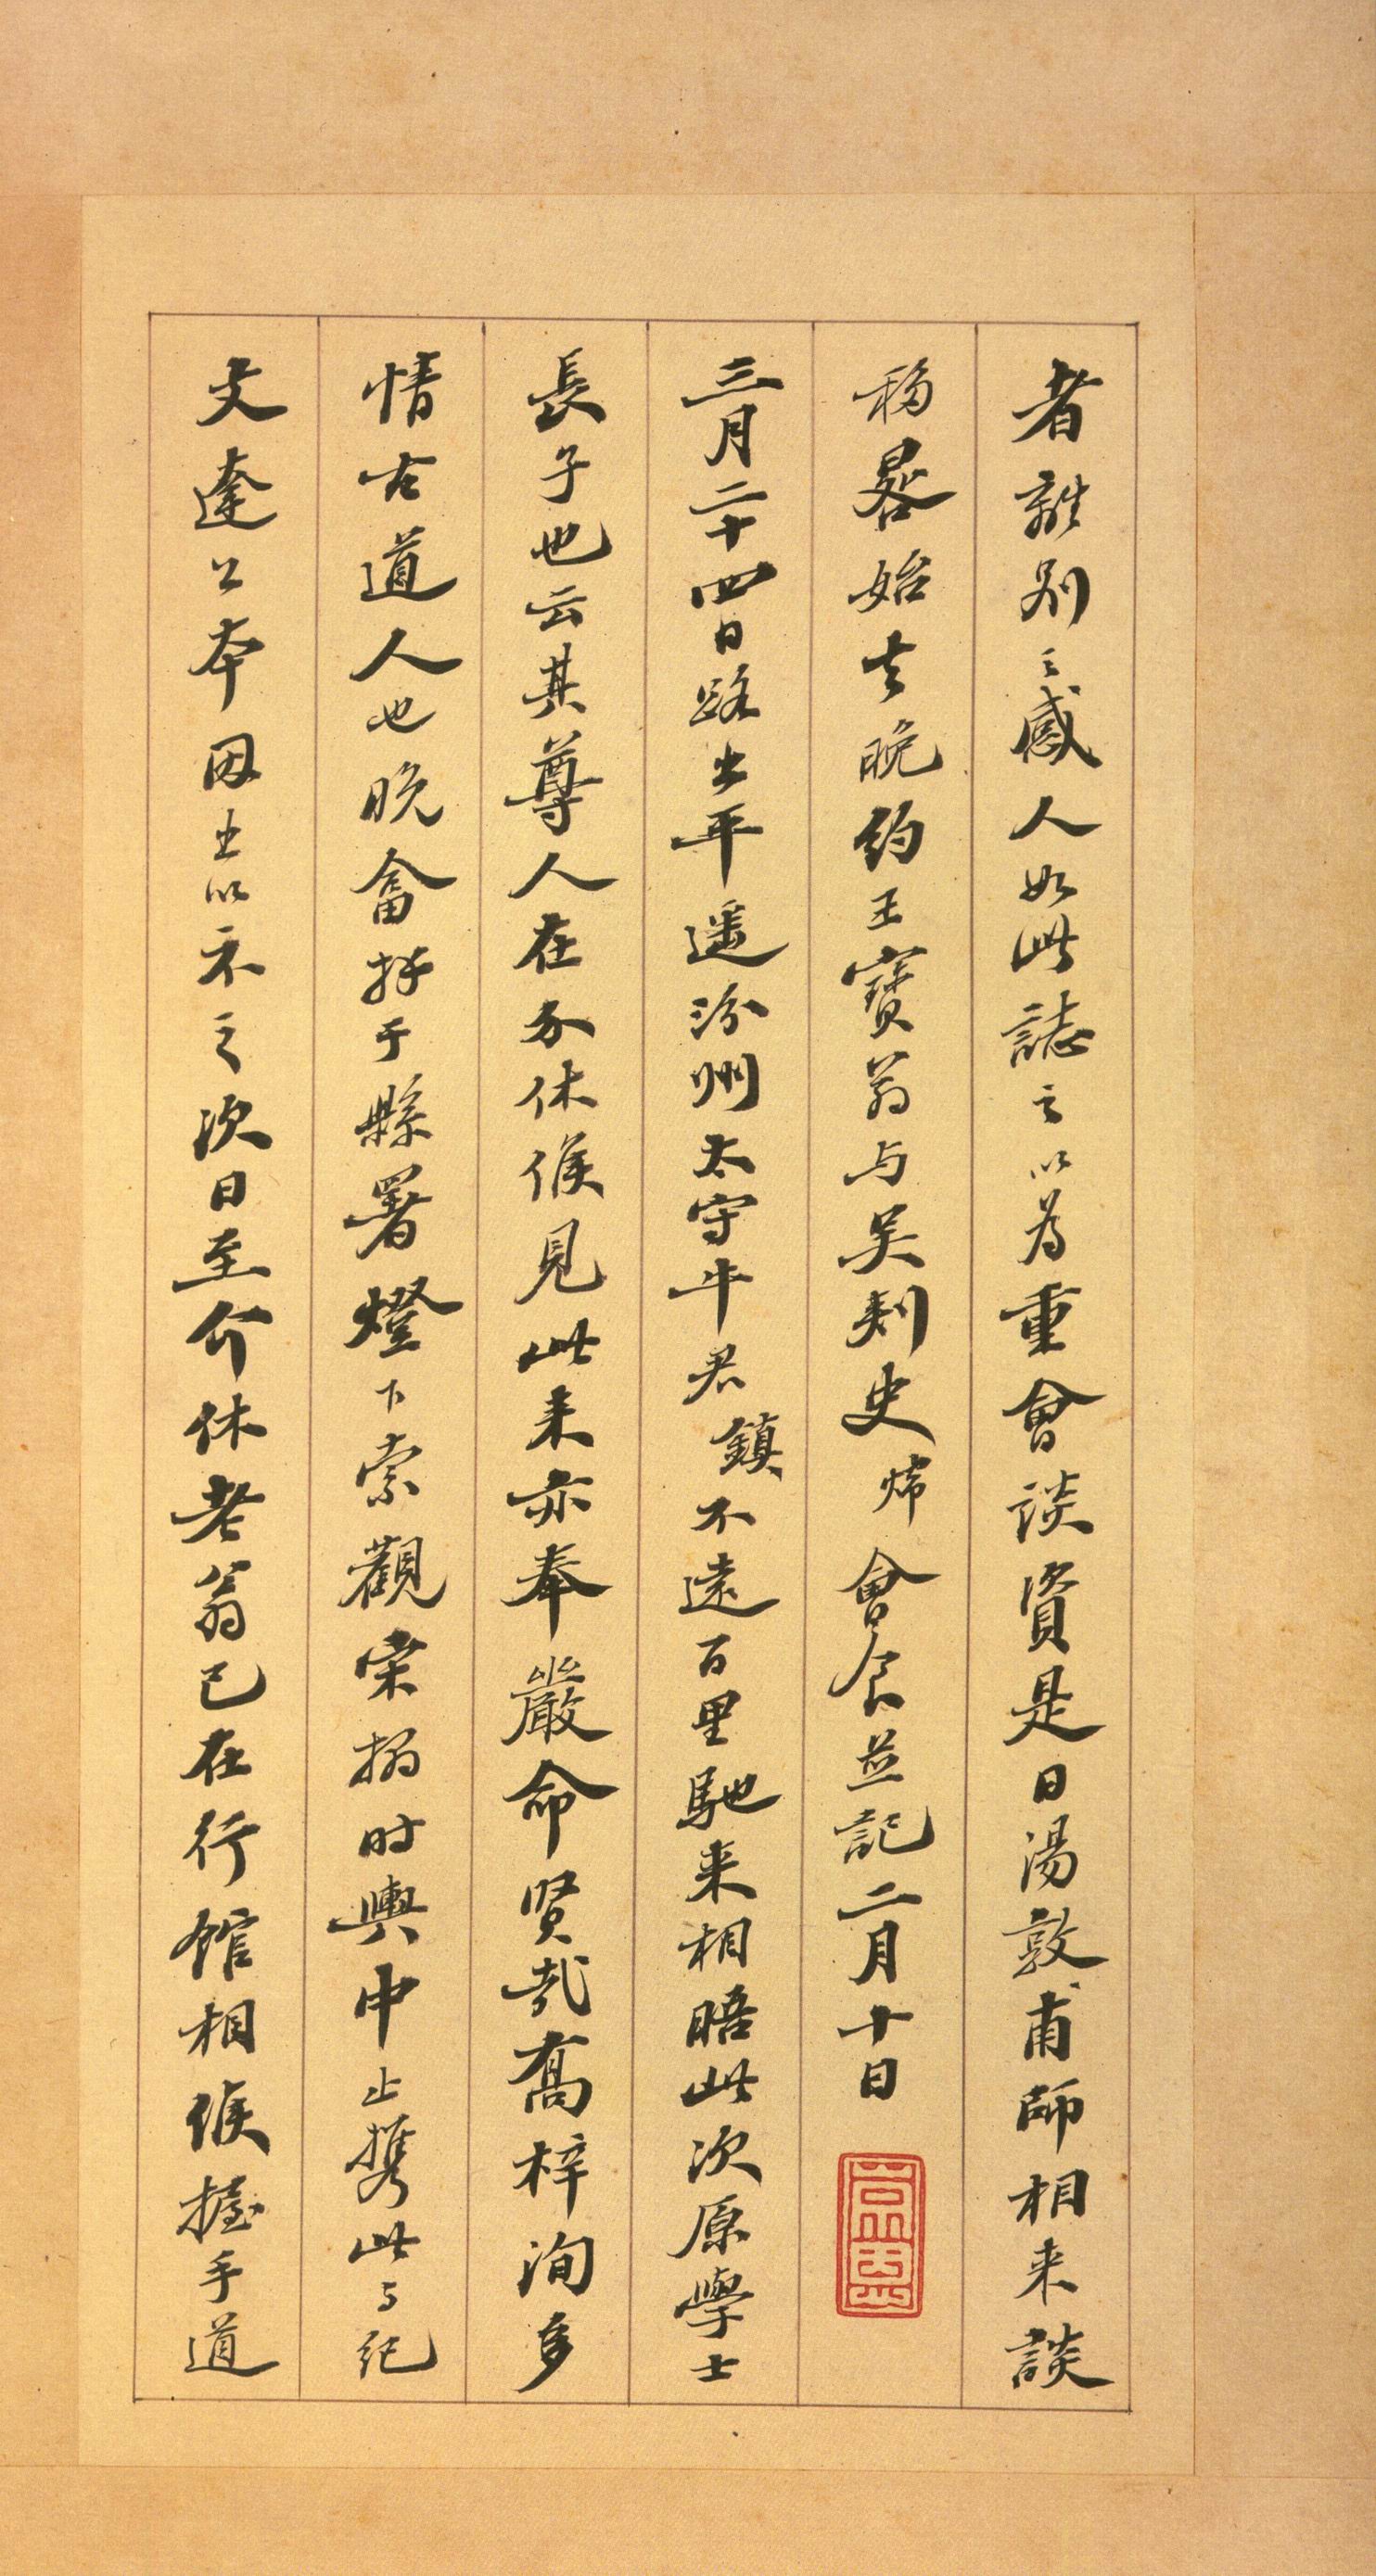 者離別之感人如此誌之以為重會談資是日湯敦甫師相來談
移晷始去晚約王寶翁与吳刺史煒會食並記二月十日
三月二十四日路出平遥汾州太守牛君鎮不遠百里馳来相晤此次原學士
長子也云其尊人在介休候見此来亦奉嚴命賢哉喬梓洵多
情古道人也晚畲拜于縣署燈下索觀宋搨时輿中止携此与紀
文達公本因出以示之次日至介休老翁已在行館相候握手道